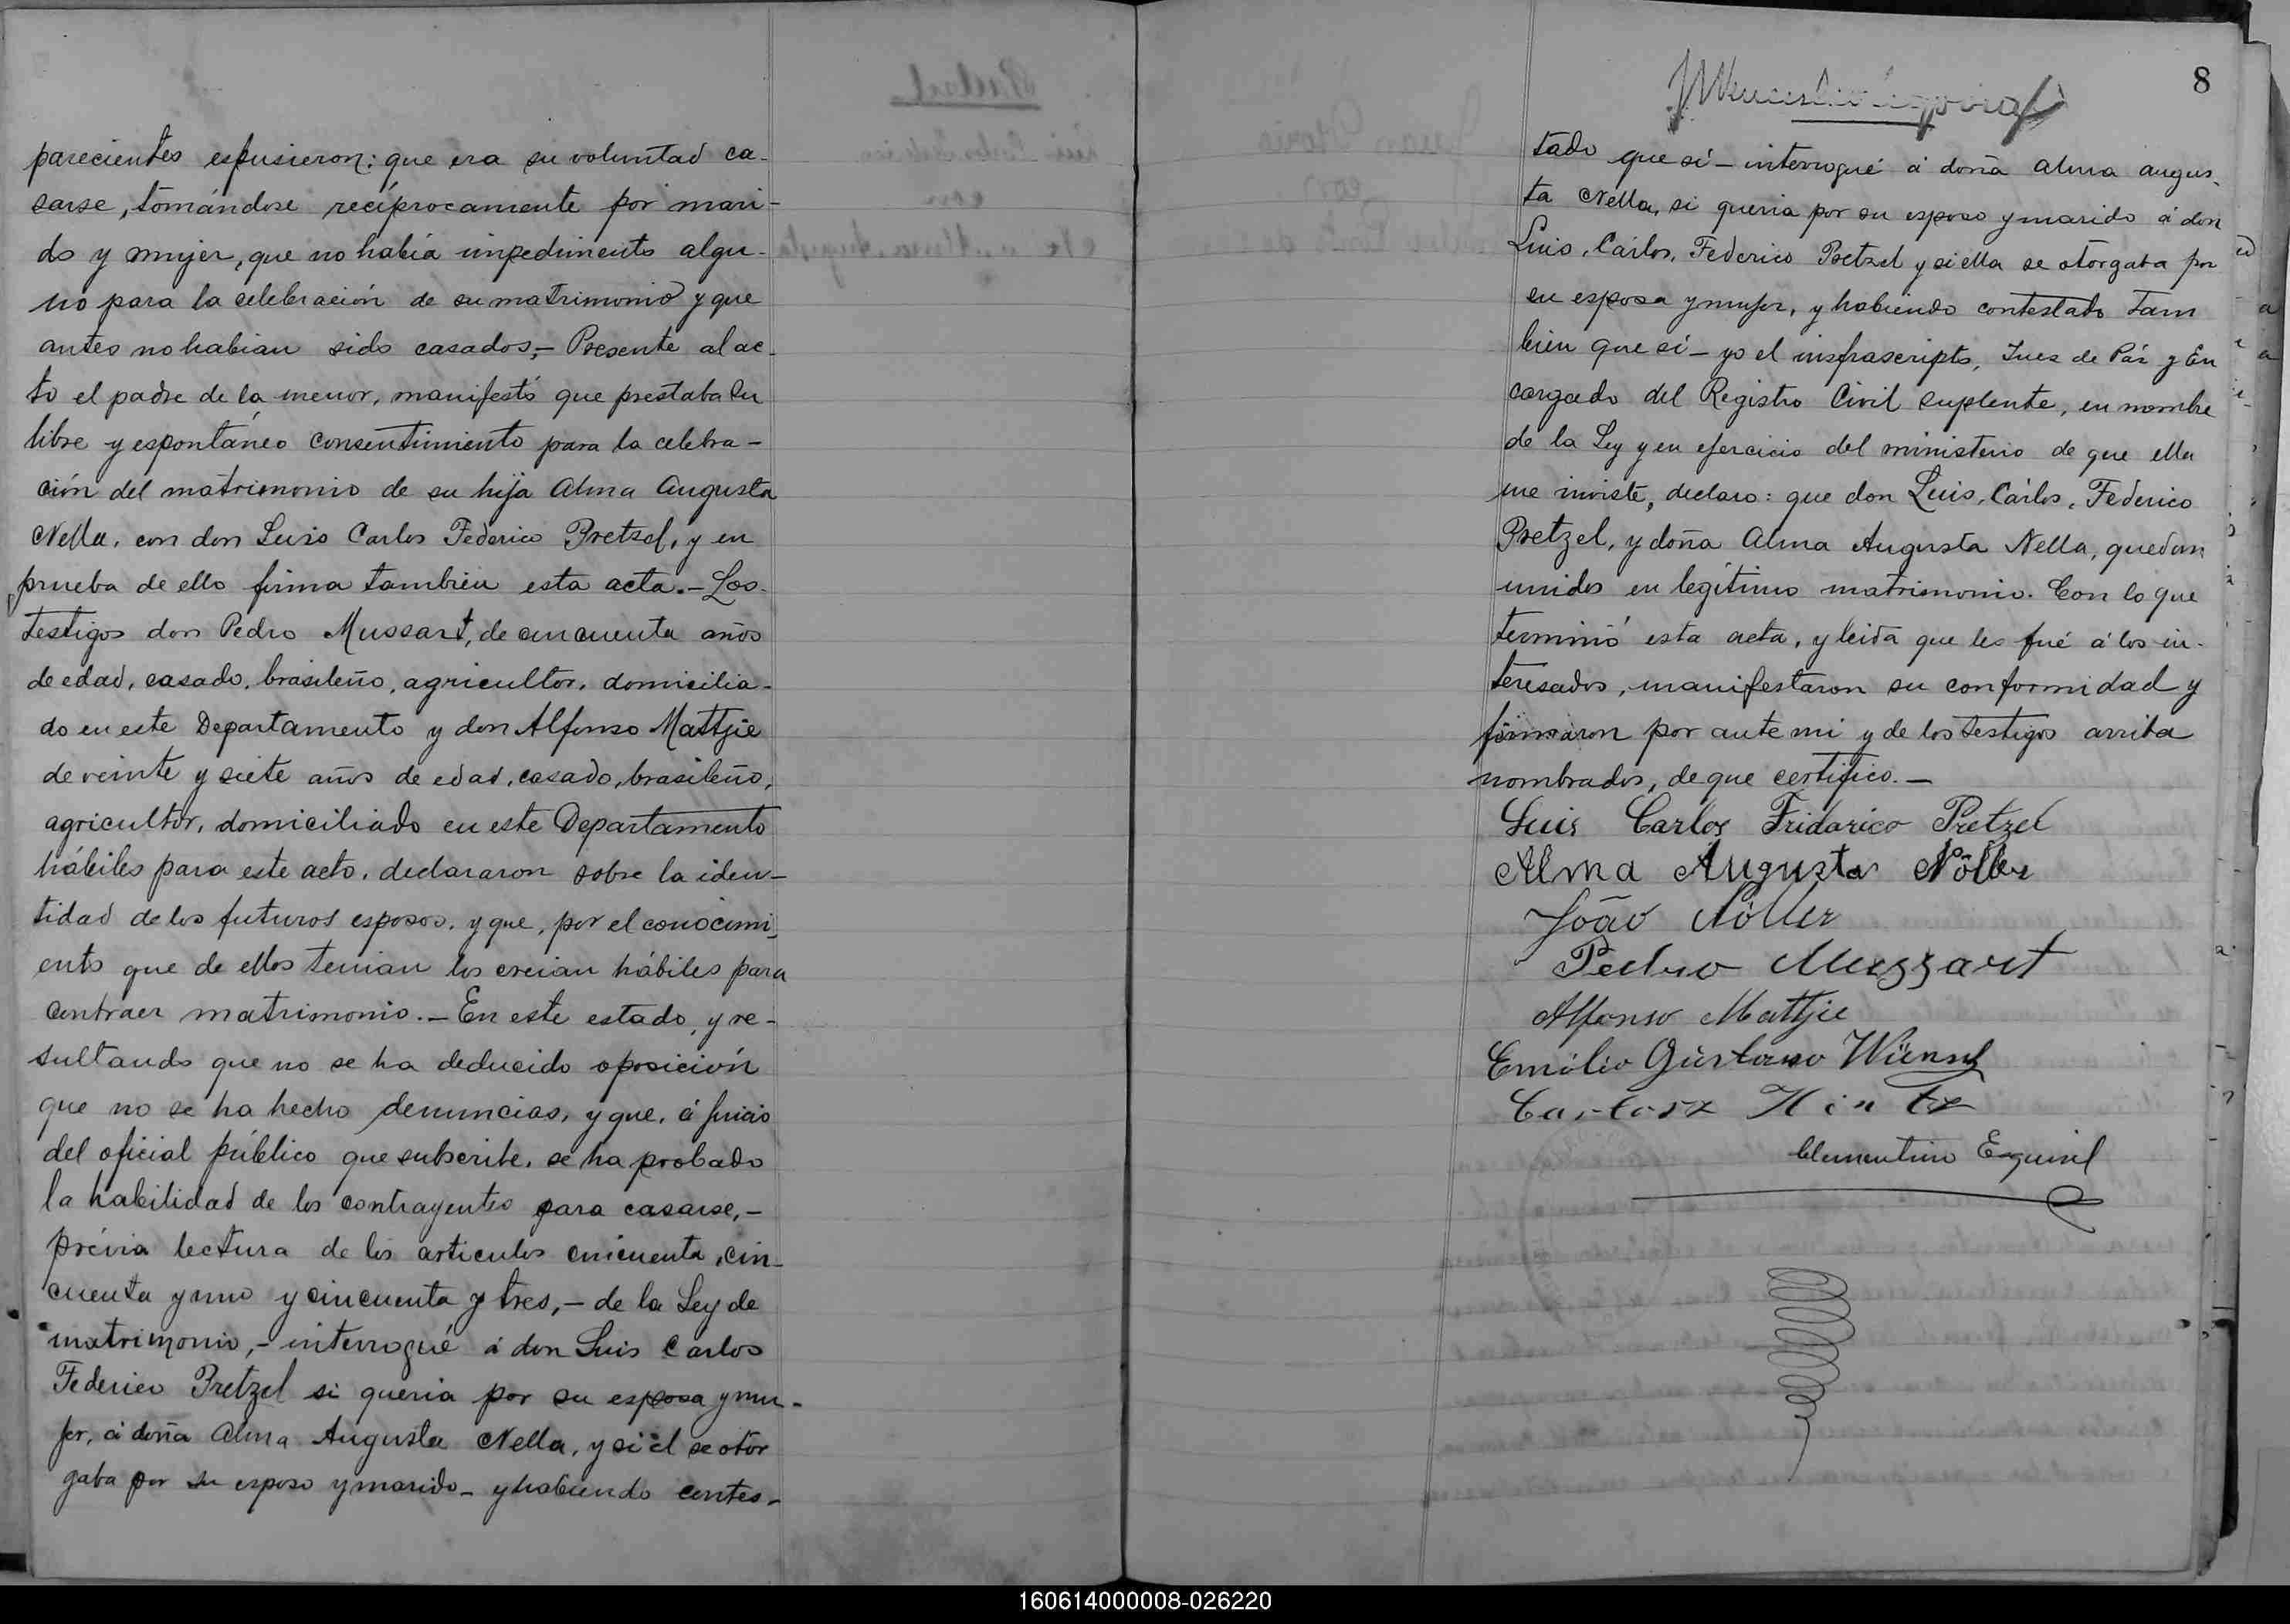 parecientes espusieron: que era su voluntad ca-
sarse, tomándose recíprocamente por mari-
do y mujer, que no había impedimento algu-
no para la celebración de su matrimonio y que
antes no habian sido casados,- Presente al ac-
to el padre de la menor, manifestó que prestaba su
libre y espontáneo consentimiento para la celebra-
ción del matrimonio de su hija Alma Augusta
Nella, con don Luis Carlos Federico Pretzel, y en
prueba de ello firma tambien esta acta.- Los
testigos don Pedro Mussart, de cincuenta años
de edad, casado, brasileño, agricultor, domicilia-
do en este Departamento y don Alfonso Mattjie
de veinte y siete años de edad, casado, brasileño,
agricultor, domiciliado en este Departamento
hábiles para este acto, declararon sobre la iden-
tidad de los futuros esposos, y que, por el conocimi-
ento que de ellos tenian los creian hábiles para
contraer matrimonio.- En este estado, y re-
sultando que no se ha deducido oposición
que no se ha hecho denuncias, y que, á juicio
del oficial público que subscribe, se ha probado
la habilidad de los contrayentes para casarse,-
prévia lectura de los articulos cincuenta, cin-
cuenta y uno y cincuenta y tres,- de la Ley de
matrimonio,- interrogué á don Luis Carlos
Federico Pretzel si queria por su esposa y mu-
jer, á doña Alma Augusta Nella, y si él se otor
gaba por su esposo y marido- y habiendo contes-
8
tado que sí- interrogué á doña Alma Augus-
ta Nella, si queria por su esposo y marido á don
Luis, Cárlos, Federico Pretzel y si ella se otorgaba por
su esposa y mujer, y habiendo contestado tam
bien que sí- yo el insfrascripto, Juez de Páz y En
cargado del Registro Civil suplente, en nombre
de la Ley y en ejercicio del ministerio de que ella
me inviste, declaro: que don Luis, Cárlos, Federico
Pretzel, y doña Alma Augusta Nella, quedan
unidos en legítimo matrimonio. Con lo que
terminó esta acta, y leida que les fué á los in-
teresados, manifestaron su conformidad y
firmaron por ante mi y de los testigos arriba
nombrados, de que certifico.-
Luis Carlos Fridarico Pretzel
Alma Augusta Nöller
João Nöller
Pedro Mussart
Alfonso Mattjie
Emilio Gustavo Wünsch
Hintz
Clementino Esquivel
160614000008-026220